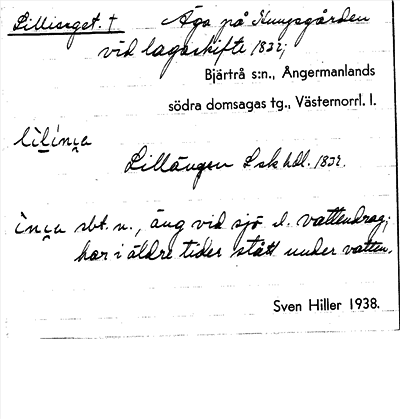 Lillisget. † Äga på Kungsgården
vid lagaskifte 1832;
Bjärtrå s:n., Ångermanlands
södra domsagas tg., Västernorrl. l.
Lillängen Lskhdl. 1832.
sbt. n., äng vid sjö el. vattendrag;
har i äldre tider stått under vatten.
Sven Hiller 1938.